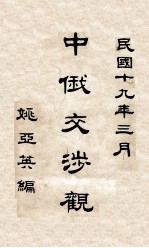 民國十九年三月
中俄交涉觀
姚亞英編